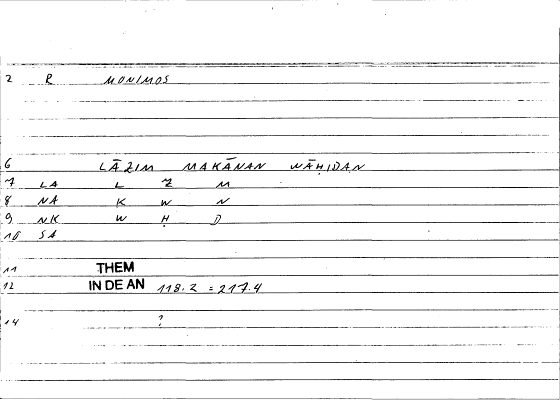 2 R MONIMOS
6 LĀZIM MAKĀNAN WĀḤIDAN
7 LA L Z M
8 NA K W N
9 NK W Ḥ D
10 SA
11 THEM
12 IN DE AN 118.2 = 217.4
14 ?